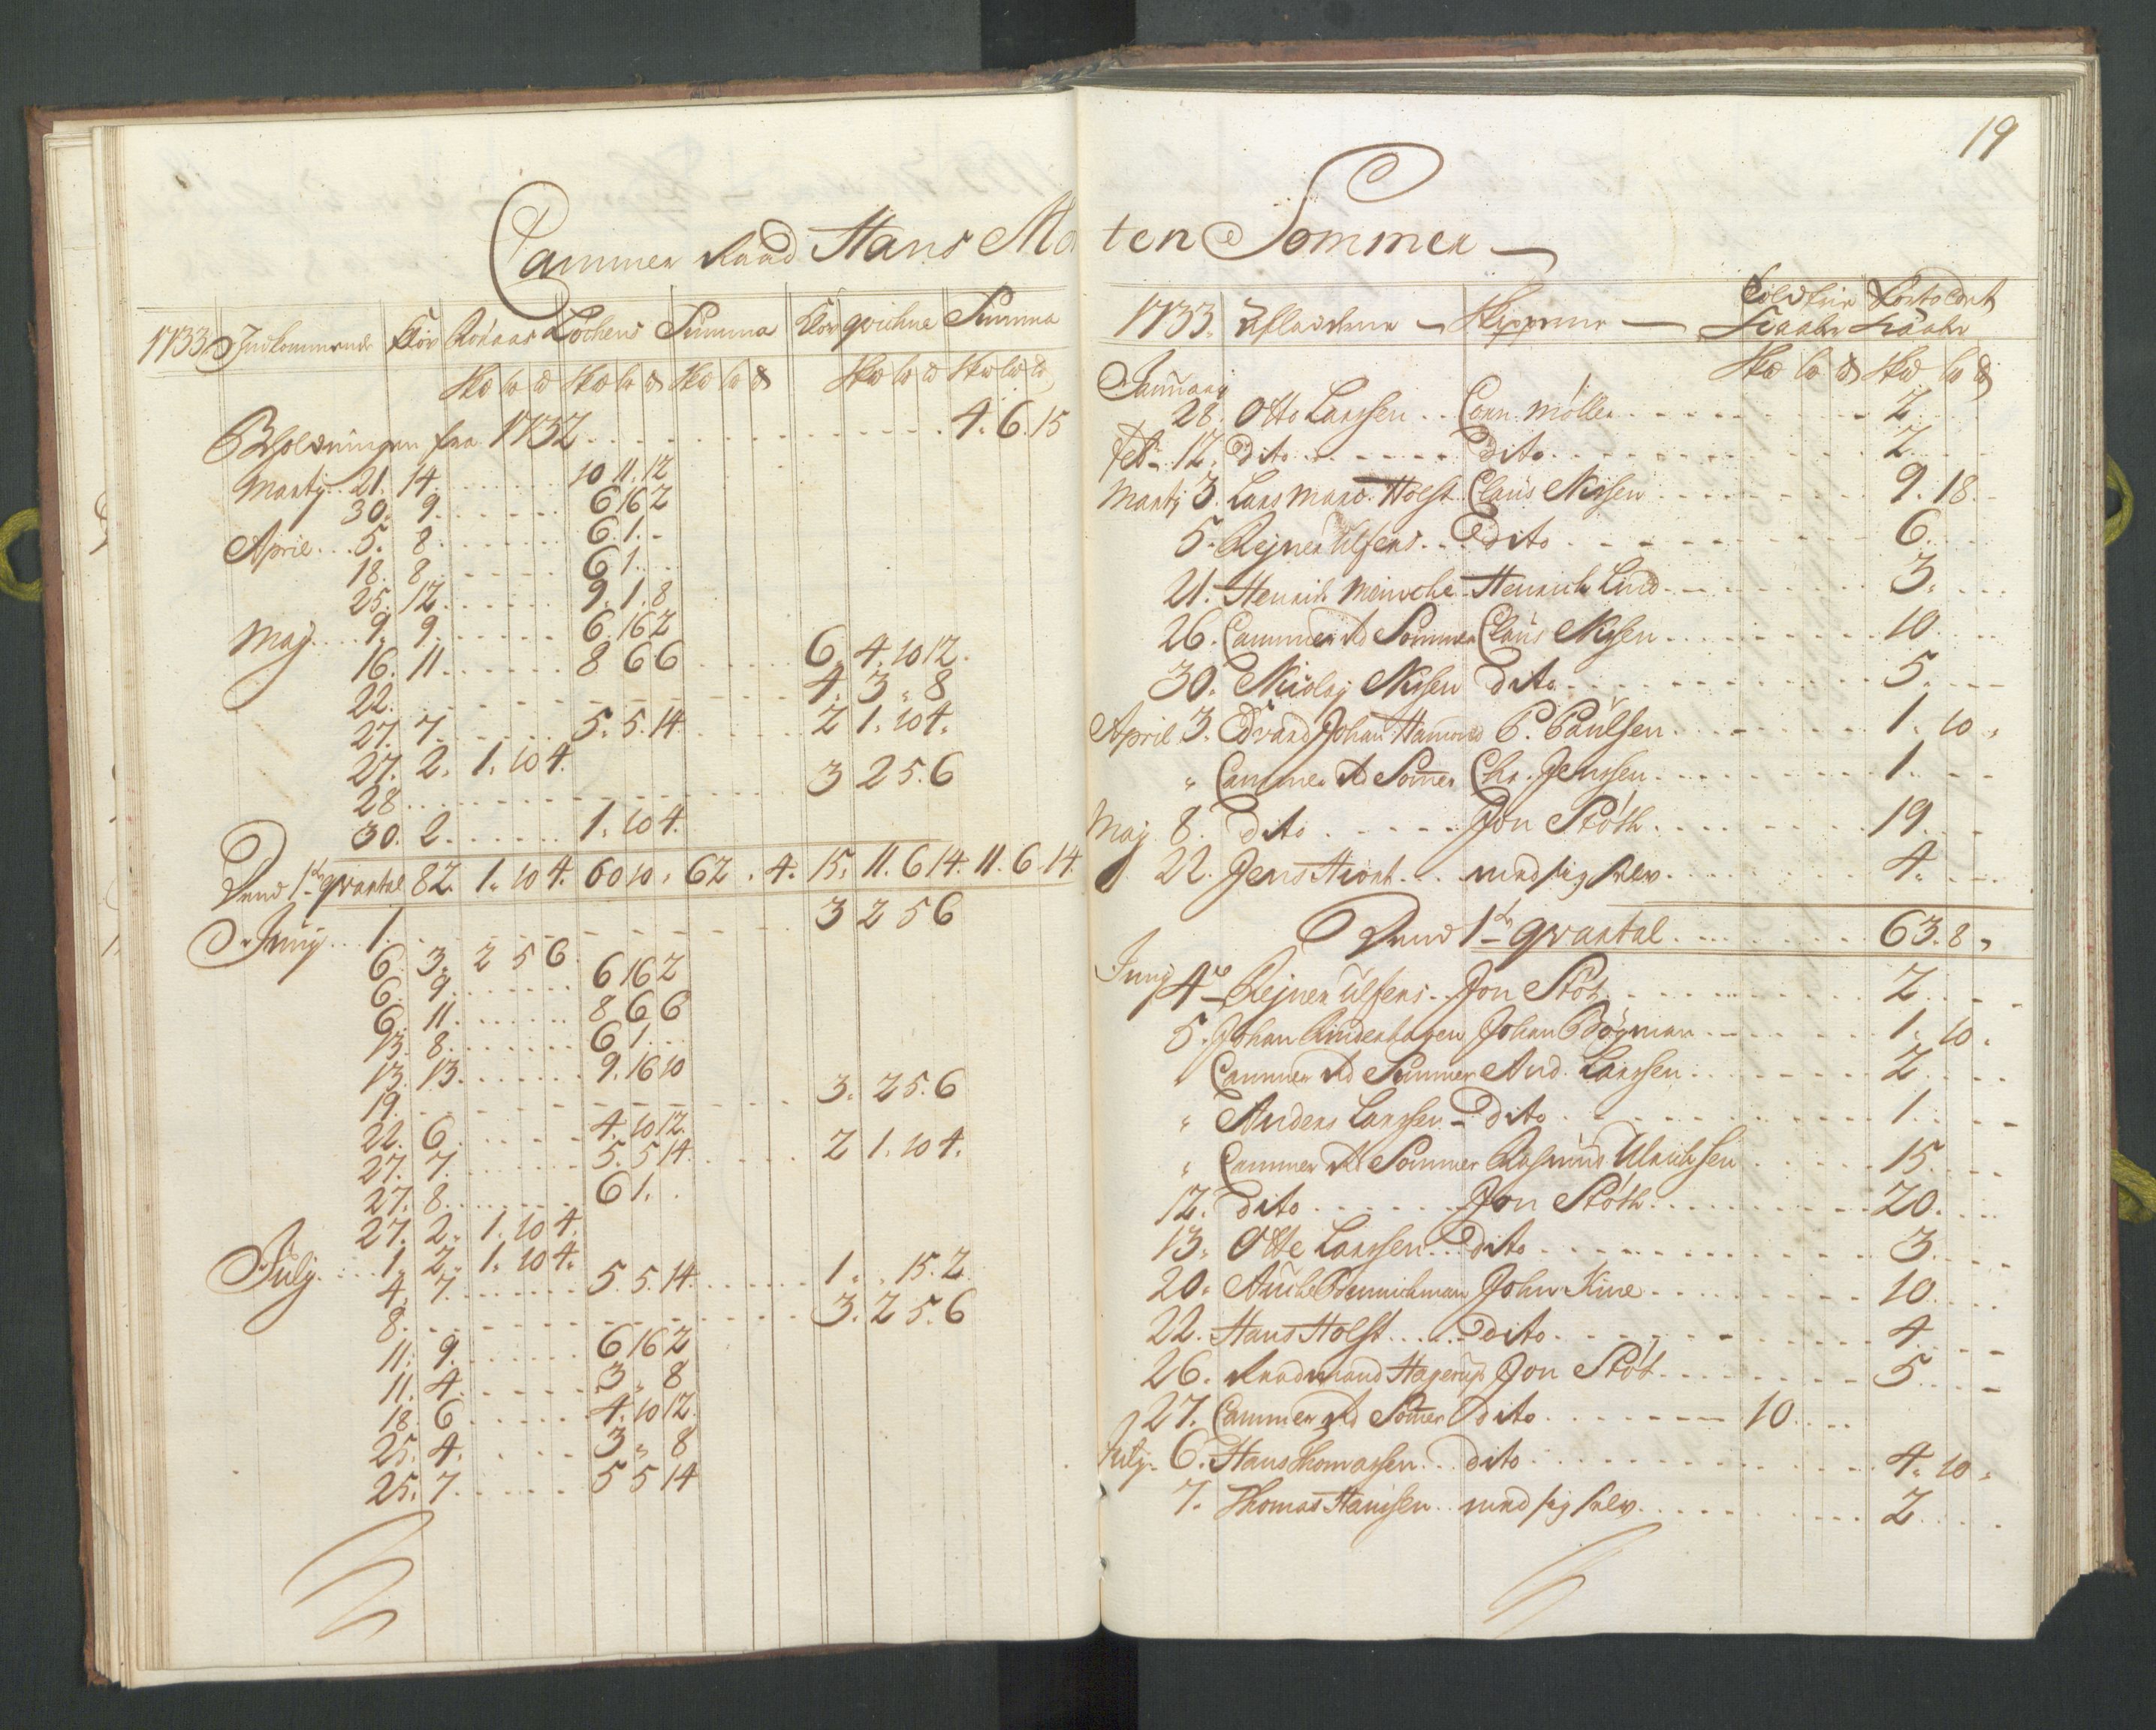 Cammer Raad Hans Mo
1733 Indkommende Kiør Røraas Løchens Summa Kiør qvichne Summa
Sk℔ l℔ ℔ Sk℔ l℔ ℔ Sk℔ l℔ ℔ Sk℔ l℔ ℔ Sk℔ l℔ ℔
Beholdningen fra 1732 4. 6. 15
Martij 21. 14. 10 11. 12
30. 9. 6 16 2
April 5. 8. 6. 1. -
18. 8. 6 1.
25. 12. 9. 1. 8
Maj 9. 9. 6. 16 2
16. 11. 8 6 6 6. 4. 10 12.
22. 4. 3 „ 8
27. 7. 5. 5. 14. 2 1. 10 4.
27. 2. 1. 10 4.
28. 3 2 5. 6
30. 2. 1. 10 4.
1ste qvartal 82. 1. 10 4. 60 10 „ 62 . 4. 15. 11. 6 14. 11. 6. 14.
Junij 1. 3 2 5 6
6. 3. 2 5 6.
6. 9. 6 16 2
6. 11. 8 6 6
13. 8. 6 1.
13. 13. 9. 16 10
19. 3. 2 5. 6
22. 6. 4. 10 12.
27. 7. 5. 5 14. 2 1. 10 4.
27. 8. 6 1.
27. 2. 1. 10 4.
July 1. 2. 1. 10 4.
4. 7. 5. 5. 14. 1. „ 15. 2
8. 3. 2 5. 6
11. 9. 6 16 2
11. 4. 3 „ 8
18. 6. 4. 10 12.
25. 4. 3 „ 8
25. 7. 5 5 14
19
ten Sommer
1733. Afladerne Skipperne
Sk℔ l℔ ℔ Sk℔ l℔ ℔
Januarj
28. Otto Larssen Corn. Møller 2
Feb. 12. Dito Dito 2
Martij 3. Lars Holst Claus Nissen 9. 18.
5. Rejner Ulfers Dito 6.
21. Henrich Meinche Henrich Lind 3.
26. Cammer Rd Sommer Claus Nissen 10
30. Nicolaj Nissen Dito 5.
April 3. Edvard Johan Hammond P. Paulsen 1. 10 „
„ Cammer Rd Somer Chr. Jenssen 1.
Maj 8. Dito Jon Stöth 19.
22. Jens Hiort med sig selv 4.
1ste qvartal 63. 8 „
Junij 4de Rejner Ulfers Jon Stöt 2
5. Johan Lindenhagen Johan Bögman 1. 10.
„ Cammer Rd Sommer And. Larssen 2
„ Anders Larssen Dito 1.
„ Cammer Rd Sommer Rasmus Ulrichsen 15
12. Dito Jon Stöth 20.
13. Otte Larssen Dito 3.
20. John Kine 10
22. Hans Holst Dito 4
26. Raadmand Hagerup Jon Stöt 5
27. Cammer Rd Somer Dito 10
July 6. Hans Thomassen Dito 4. 10 „
7. Thomas Hanssen med sig selv 2